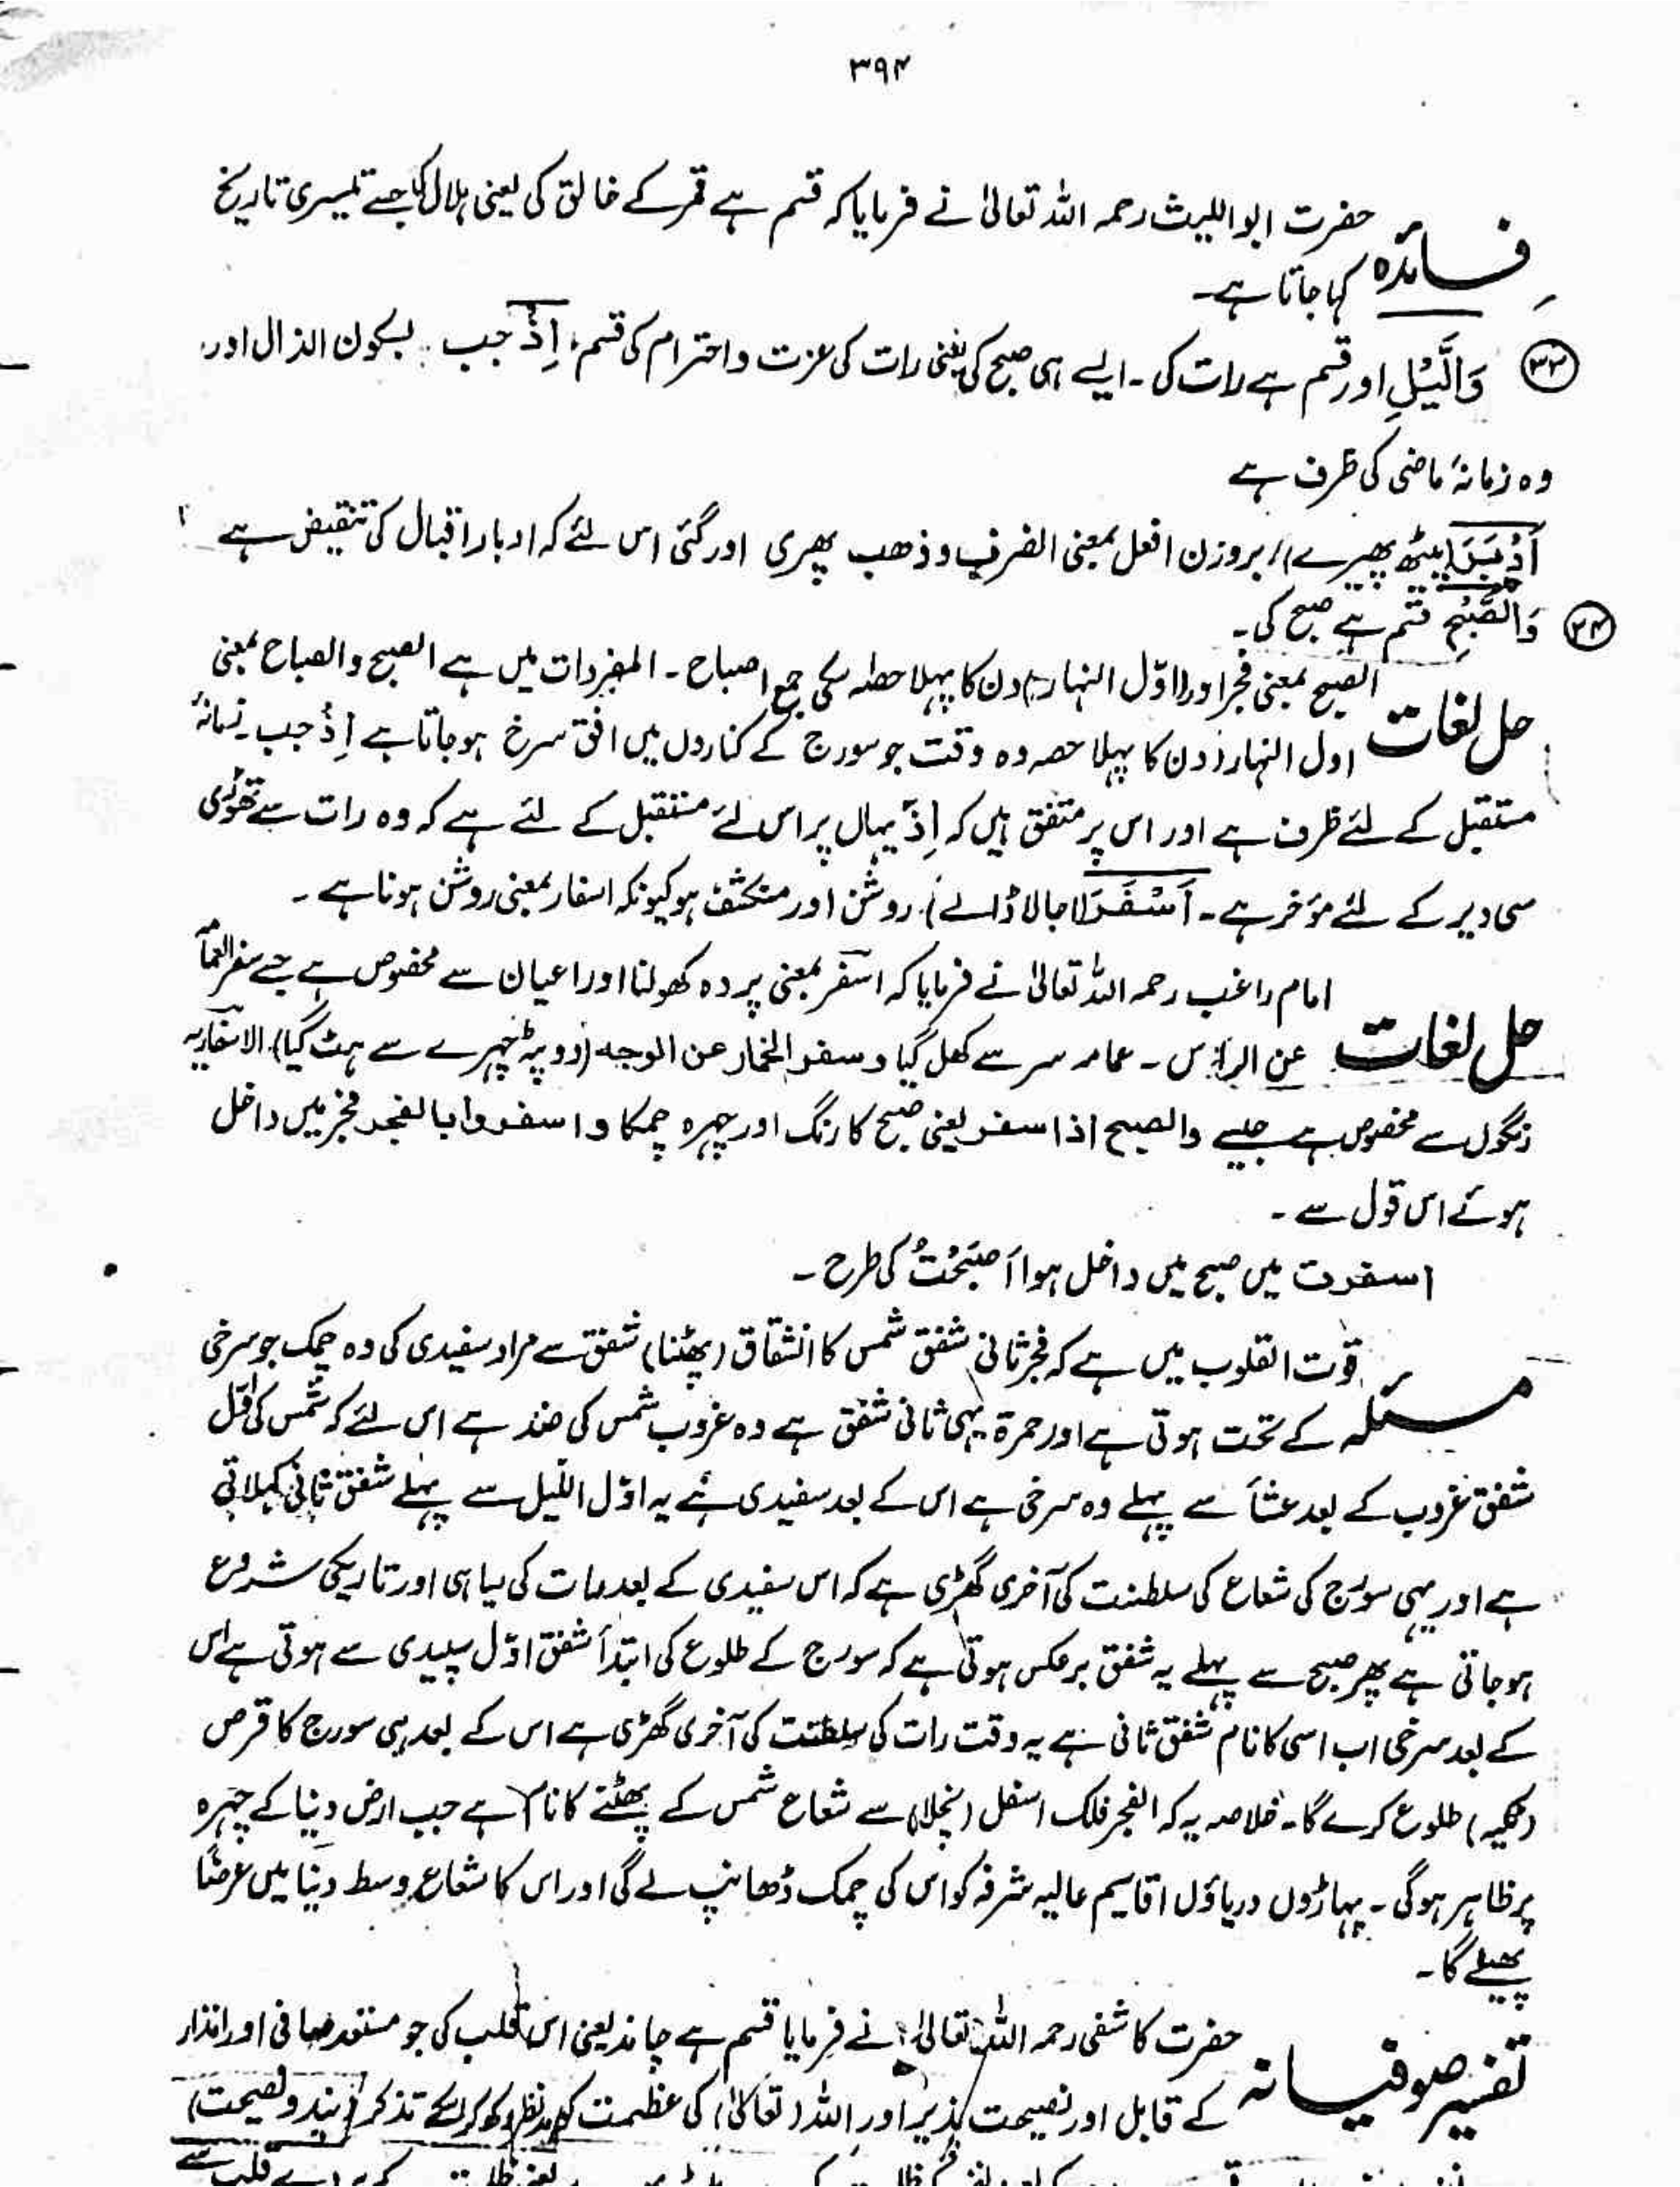 ۳۹۴
فائدہ حضرت ابو اللیث رحمہ اللہ تعالیٰ نے فرمایا کہ قسم ہے قمر کے خالق کی یعنی ہلال کا جسے تیسری تاریخ
کہا جاتا ہے۔
۳۳ وَالَّیْلِ اور قسم ہے رات کی۔ ایسے ہی صبح کی یعنی رات کی عزت و احترام کی قسم، اِذْ جب۔ بسکون الذال اور
وہ زمانۂ ماضی کی ظرف ہے
اَدْبَرَ (پیٹھ پھیرے) بروزن افعل بمعنی انصرف و ذھب پھری اور گئی اس لئے کہ ادبار اقبال کی تنقیض ہے
۳۴ وَالصُّبْحِ قسم ہے صبح کی۔
حل لغات الصبح بمعنی فجر اور (اوّل النہار) دن کا پہلا حصّہ کی جمع اصباح۔ المفردات میں ہے الصبح والصباح بمعنی
اول النہار دن کا پہلا حصہ وہ وقت جو سورج کے کناروں میں افق سرخ ہو جاتا ہے اِذْ جب زمانۂ
مستقبل کے لئے ظرف ہے اور اس پر متفق ہیں کہ اِذَ یہاں پر اس لئے مستقبل کے لئے ہے کہ وہ رات سے تھوڑی
سی دیر کے لئے مؤخر ہے۔ اَسْفَرَ (اجالا ڈالے) روشن اور منکشف ہو کیونکہ اسفار بمعنی روشن ہونا ہے۔
حل لغات امام راغب رحمہ اللہ تعالیٰ نے فرمایا کہ اسفر بمعنی پردہ کھولنا اور اعیان سے مخصوص ہے جسے سفر العمامۃ
عن الرأس۔ عمامہ سر سے کھل گیا و سفر الخمار عن الوجہ (دوپٹہ چہرے سے ہٹ گیا) الاسفار یہ
رنگوں سے مخصوص ہے جیسے والصبح اذا سفر یعنی صبح کا رنگ اور چہرہ چمکا و اسفروا بالفجر فجر میں داخل
ہوئے اس قول سے۔
اسفرت میں صبح میں داخل ہوا اَصْبَحْتُ کی طرح۔
مسئلہ قوت القلوب میں ہے کہ فجر ثانی شفق شمس کا انشقاق (پھٹنا) شفق سے مراد سفیدی کی وہ چمک جو سرخی
کے تحت ہوتی ہے اور حمرۃ یہی ثانی شفق ہے وہ غروب شمس کی ضد ہے اس لئے کہ شمس کی اوّل
شفق غروب کے بعد عشأ سے پہلے وہ سرخی ہے اس کے بعد سفیدی ہے یہ اوّل اللّیل سے پہلے شفق ثانی کہلاتی
ہے اور یہی سورج کی شعاع کی سلطنت کی آخری گھڑی ہے کہ اس سفیدی کے بعد رات کی سیاہی اور تاریکی شروع
ہو جاتی ہے پھر صبح سے پہلے یہ شفق برعکس ہوتی ہے کہ سورج کے طلوع کی ابتدأ شفق اوّل سپیدی سے ہوتی ہے اس
کے بعد سرخی اب اسی کا نام شفق ثانی ہے یہ وقت رات کی سلطنت کی آخری گھڑی ہے اس کے بعد ہی سورج کا قرص
(ٹکیہ) طلوع کرے گا۔ خلاصہ یہ کہ الفجر فلک اسفل (نچلا) سے شعاع شمس کے پھٹنے کا نام ہے جب ارض دنیا کے چہرہ
پر ظاہر ہوگی۔ پہاڑوں دریاؤں اقالیم عالیہ مشرفہ کو اس کی چمک ڈھانپ لے گی اور اس کا شعاع وسط دنیا میں عرضًا
پھیلے گا۔
تفسیر صوفیانہ حضرت کاشفی رحمہ اللہ تعالیٰ نے فرمایا قسم ہے چاند یعنی اس قلب کی جو مستعد صافی اور انذار
کے قابل اور نصیحت پذیر اور اللہ (تعالیٰ) کی عظمت کو مدنظر رکھ کر اسکے تذکر (پند و نصیحت)